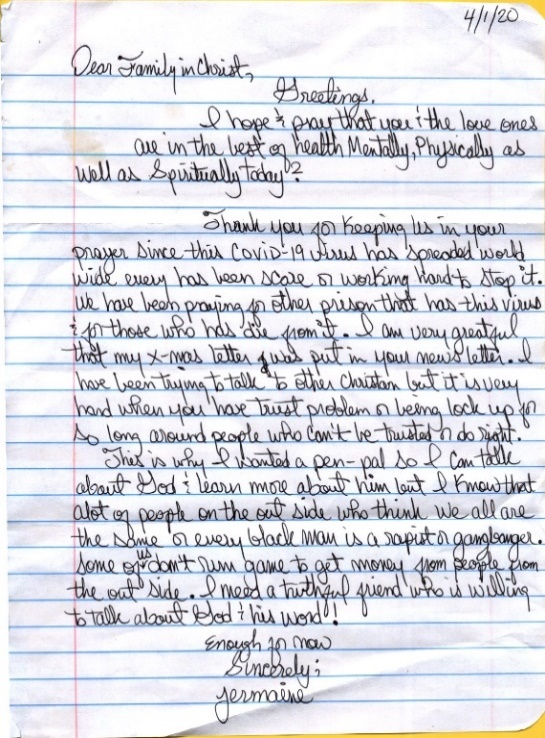 4/1/20
Dear Family in Christ,
Greetings.
I hope & pray that you & the love ones
are in the best of health Mentally, Physically as
well as Spiritually today?
Thank you for Keeping Us in your
prayer since this Covid-19 virus has spreaded world
wide every has been scare or working hard to stop it.
We have been praying for other prison that has this virus
& for those who has die from it. I am very greatful
that my x-mas letter was put in your news letter. I
have been trying to talk to other Christian but it is very
hard when you have trust problem or being lock up for
so long around people who can't be trusted or do right.
This is why I wanted a pen-pal so I can talk
about God & learn more about him but I know that
alot of people on the out side who think we all are
the same or every black man is a rapist or gangbanger.
some of us don't run game to get money from people from
the out side. I need a truthful friend who is willing
to talk about God & his word!
Enough for now
Sincerely;
Jermaine